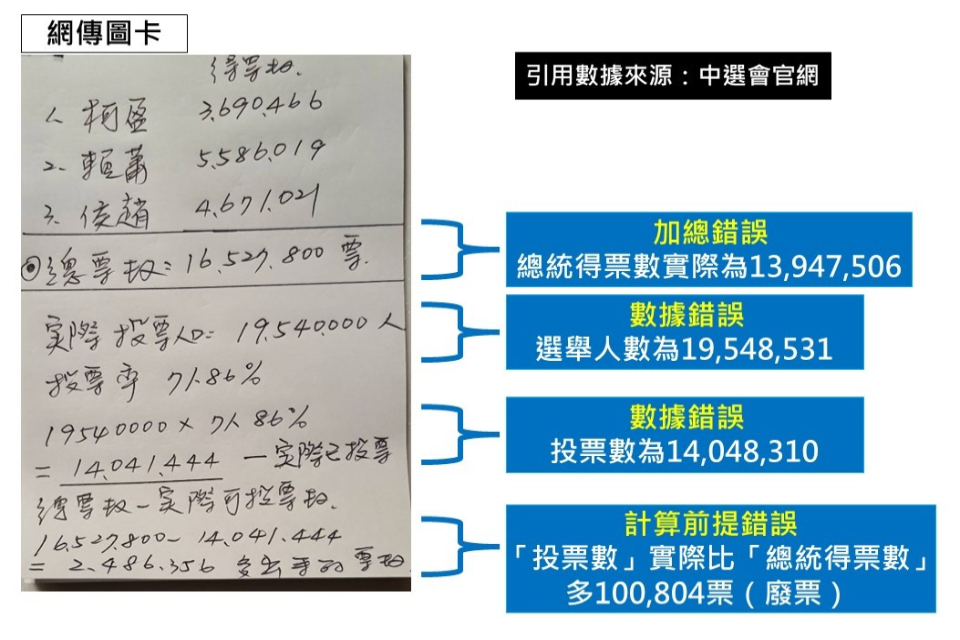 網傳圖卡
引用數據來源：中選會官網
得票数.
1、柯盈 3,690.466
2、賴蕭 5,586.019
3、侯趙 4.671.021
⦿總票数：16,527.800 票.
実際投票人口：19.540.000人
投票率 71.86%
19540000 × 71.86%
= 14.041.444 —実際已投票
總票数—実際可投票数.
16.527.800 — 14.041.444
= 2.486.356 多出手的票数
加總錯誤
總統得票數實際為13,947,506
數據錯誤
選舉人數為19,548,531
數據錯誤
投票數為14,048,310
計算前提錯誤
「投票數」實際比「總統得票數」
多100,804票（廢票）